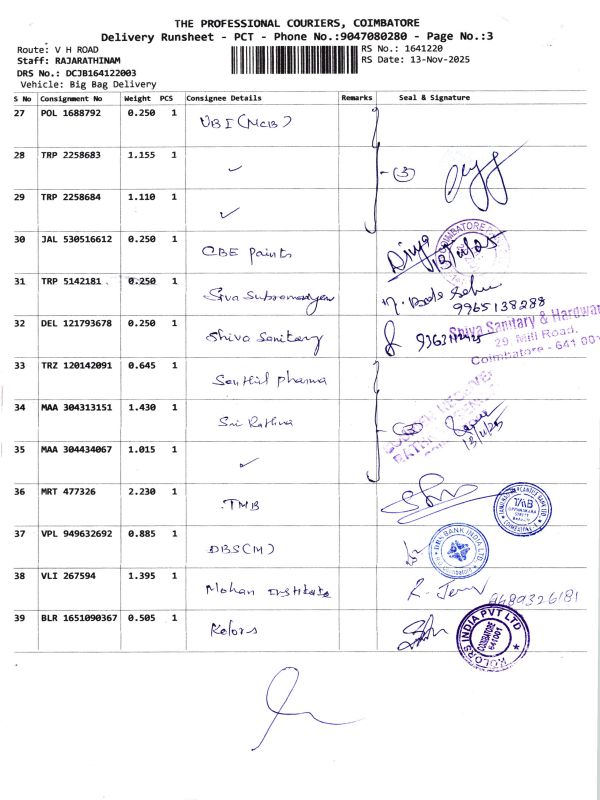 THE PROFESSIONAL COURIERS, COIMBATORE
Delivery Runsheet - PCT - Phone No.:9047080280 - Page No.:3
Route: V H ROAD
RS No.: 1641220
Staff: RAJARATHINAM
RS Date: 13-Nov-2025
DRS No.: DCJB164122003
Vehicle: Big Bag Delivery
S No Consignment No Weight PCS Consignee Details Remarks Seal & Signature
27 POL 1688792 0.250 1 UBI (McB)
28 TRP 2258683 1.155 1 ✓ (3)
29 TRP 2258684 1.110 1 ✓
30 JAL 530516612 0.250 1 CBE Paints 13/11/25
31 TRP 5142181 0.250 1 Siva Subramaniyam 9965138288
32 DEL 121793678 0.250 1 Shiva Sanitary
Shiva Sanitary & Hardwar
29, Mill Road,
Coimbatore - 641 001
33 TRZ 120142091 0.645 1 Senthil Pharma
34 MAA 304313151 1.430 1 Sri Rathna (3) 13/11/25
35 MAA 304434067 1.015 1 ✓
36 MRT 477326 2.230 1 TMB TMB
37 VPL 949632692 0.885 1 DBS(M) DBS BANK INDIA LTD
38 VLI 267594 1.395 1 Mohan Institute 9489326181
39 BLR 1651090367 0.505 1 Kolors KOLORS INDIA PVT LTD COIMBATORE 641001